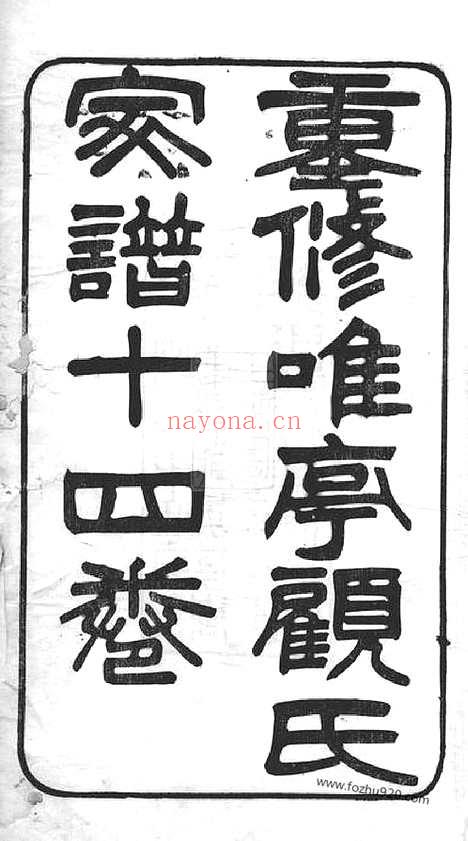 重修唯亭顧氏
家譜十四卷
nayona.cn
www.fozhu920.com